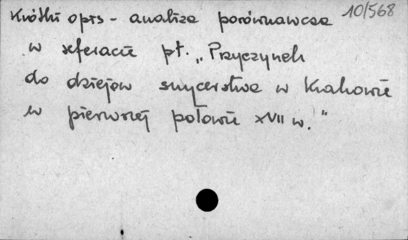 10/568
Krótki opis - analiza porównawcza
w referacie pt. „Przyczynek
do dziejów snycerstwa w Krakowie
w pierwszej połowie XVII w."